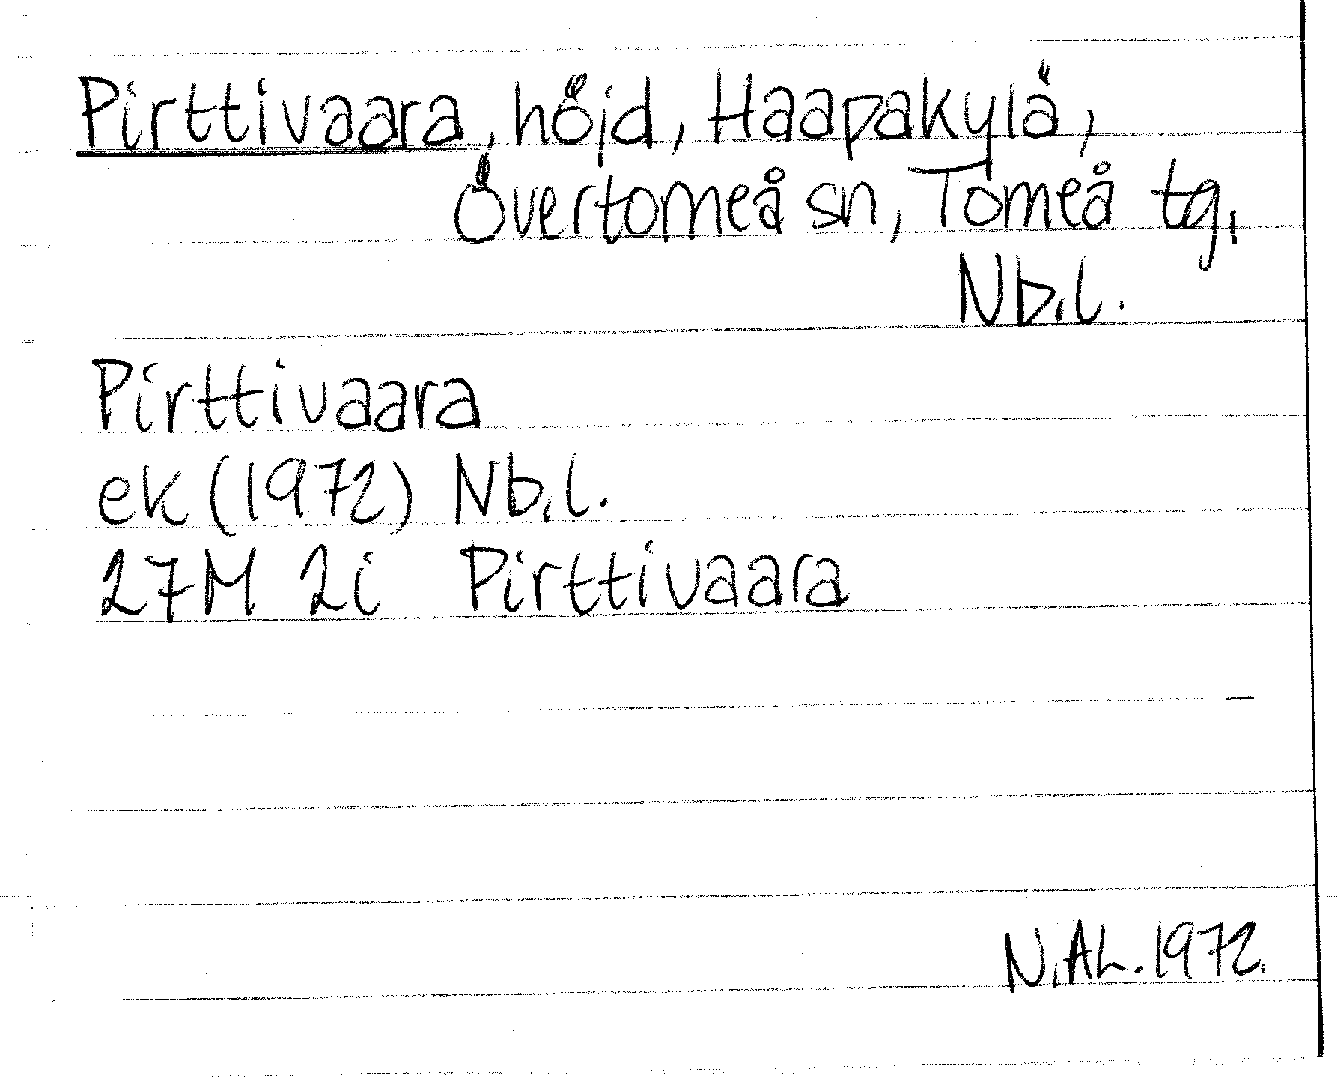 Pirttivaara, höjd, Haapakylä,
Övertorneå sn, Torneå tg.
Nb.l.
Pirttivaara
ek (1972) Nb.l.
27M 2i Pirttivaara
N.AL. 1972.